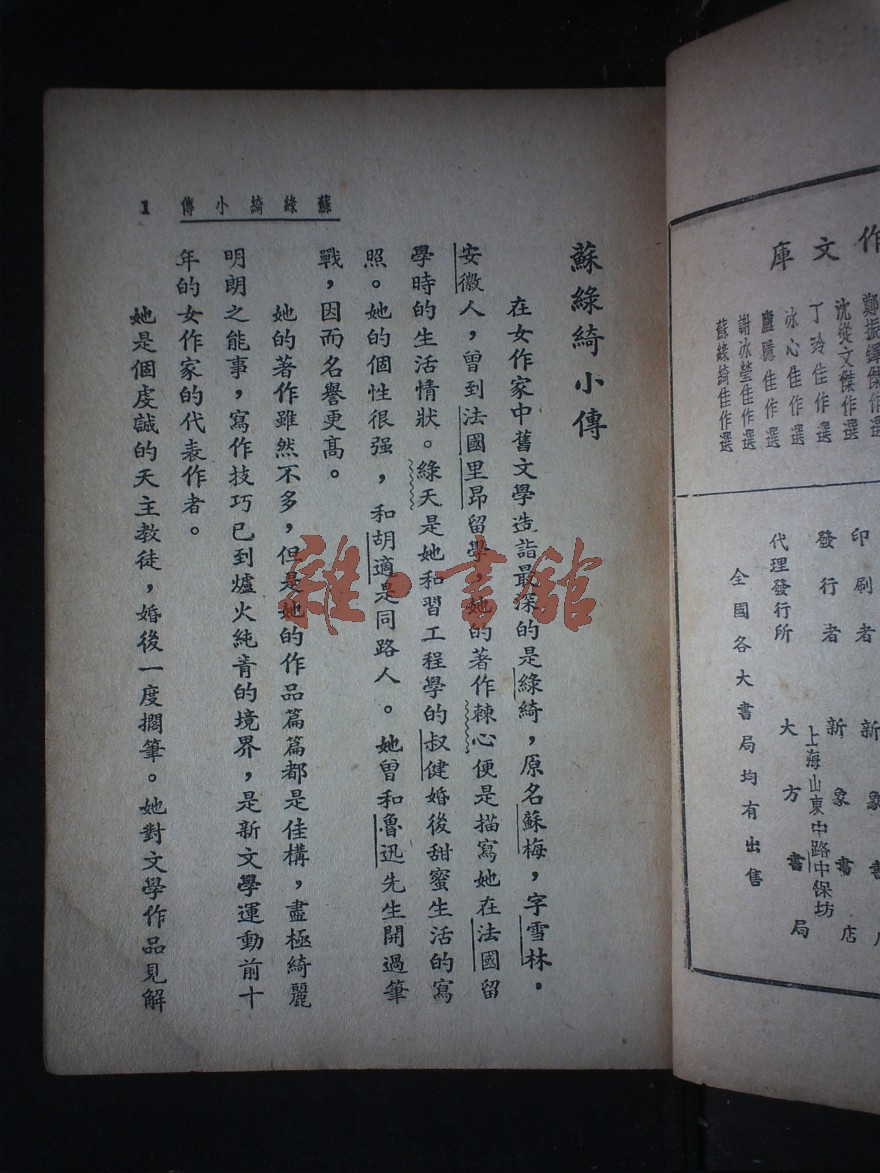 作文庫
鄭振鐸傑作選
沈從文傑作選
丁玲佳作選
冰心佳作選
廬隱佳作選
謝冰瑩佳作選
蘇綠綺佳作選
印刷者 新象書店
發行者 新象書店
上海山東中路中保坊
代理發行所 大方書局
全國各大書局均有出售
蘇綠綺小傳 1
蘇綠綺小傳
在女作家中舊文學造詣最深的是綠綺，原名蘇梅，字雪林。
安徽人，曾到法國里昂留學，她的著作棘心便是描寫她在法國留
學時的生活情狀。綠天是她和習工程學的叔健婚後甜蜜生活的寫
照。她的個性很强，和胡適是同路人。她曾和魯迅先生開過筆
戰，因而名譽更高。
她的著作雖然不多，但是她的作品篇篇都是佳構，盡極綺麗
明朗之能事，寫作技巧已到爐火純青的境界，是新文學運動前十
年的女作家的代表作者。
她是個虔誠的天主教徒，婚後一度擱筆。她對文學作品見解
雜·書館